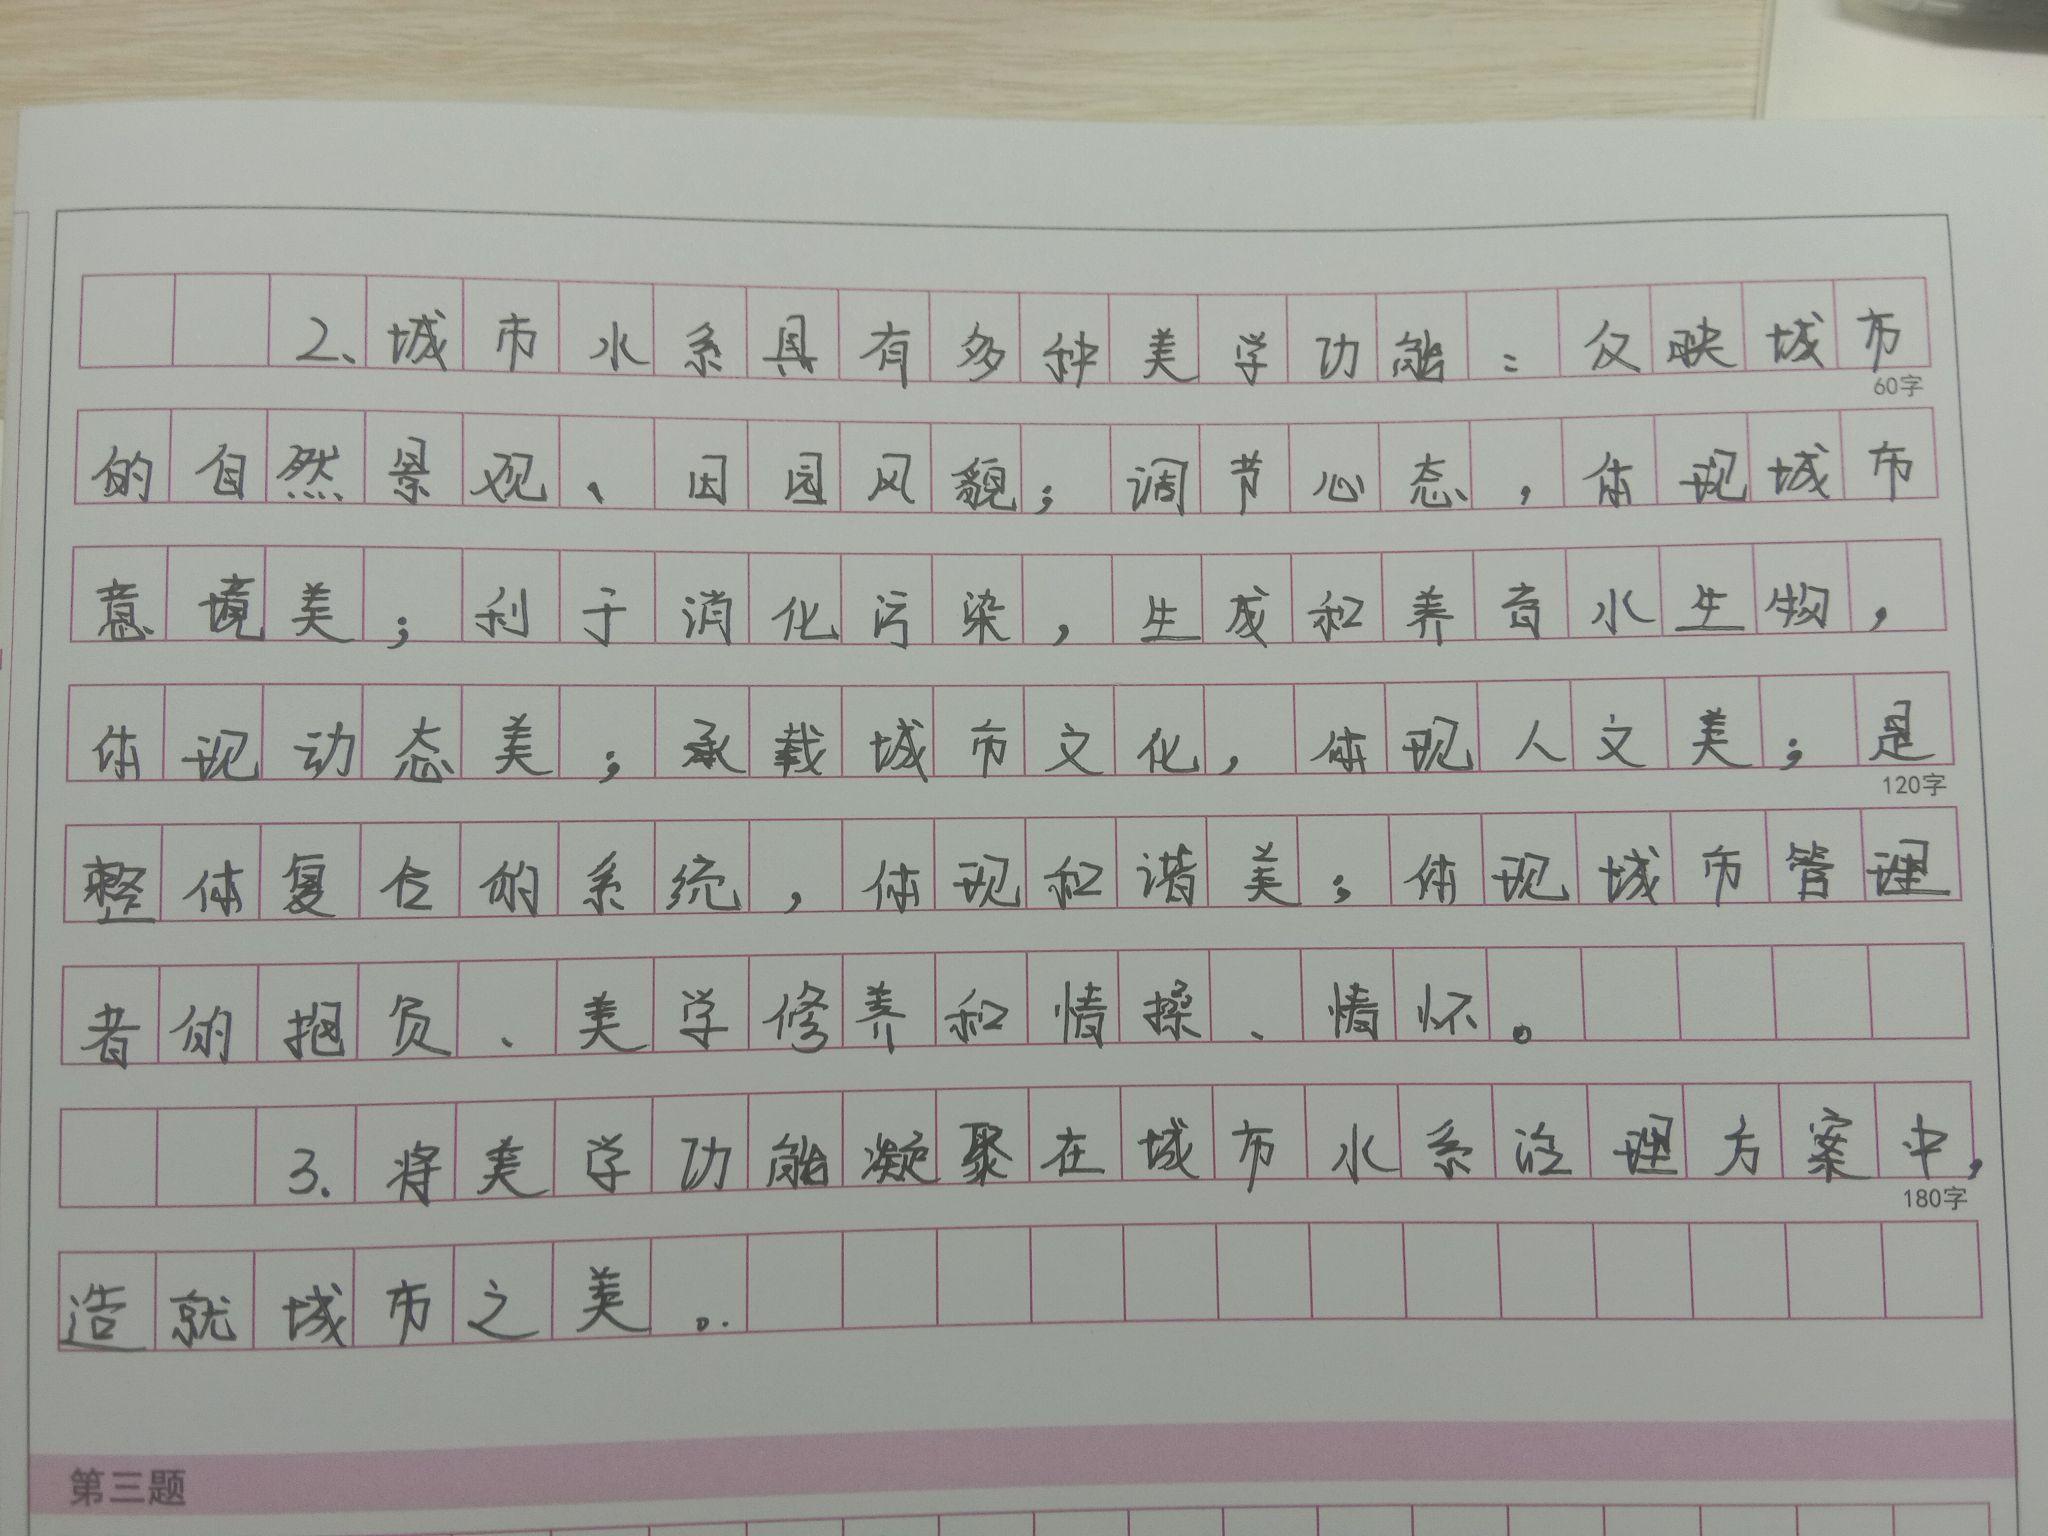 2、城市水系具有多种美学功能：反映城市
60字
的自然景观、田园风貌；调节心态，体现城市
意境美；利于消化污染，生成和养育水生物，
体现动态美；承载城市文化，体现人文美；是
120字
整体复合的系统，体现和谐美；体现城市管理
者的抱负、美学修养和情操、情怀。
3.将美学功能凝聚在城市水系治理方案中，
180字
造就城市之美。
第三题